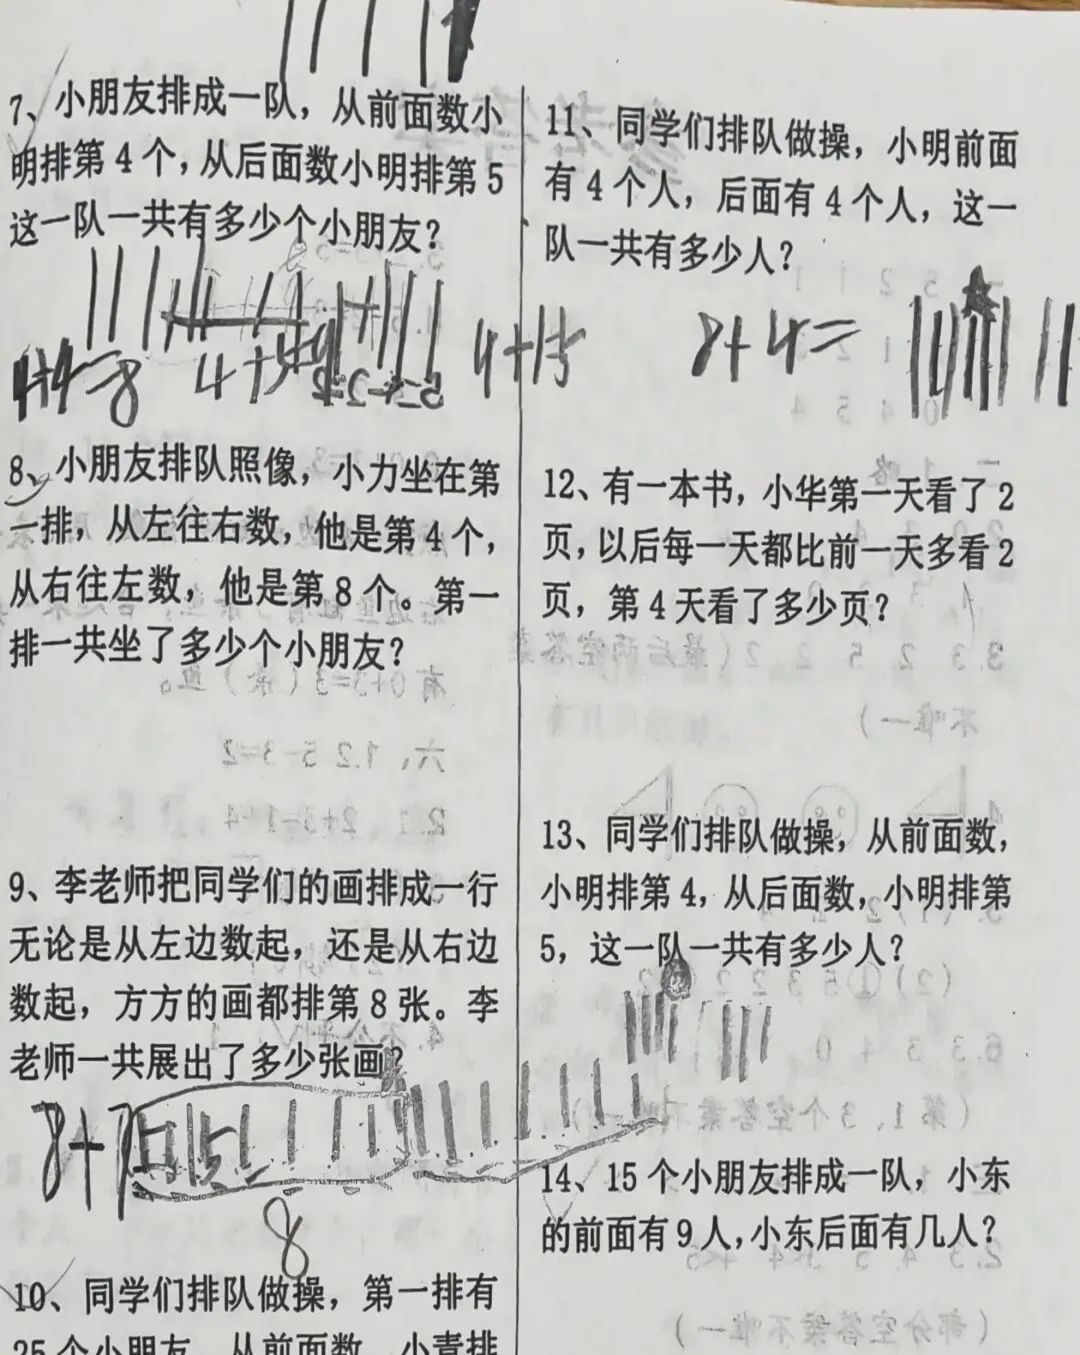 7、小朋友排成一队，从前面数小
明排第4个，从后面数小明排第5
这一队一共有多少个小朋友？
4+4=8
8、小朋友排队照像，小力坐在第
一排，从左往右数，他是第4个，
从右往左数，他是第8个。第一
排一共坐了多少个小朋友？
9、李老师把同学们的画排成一行
无论是从左边数起，还是从右边
数起，方方的画都排第8张。李
老师一共展出了多少张画？
8+7
8
10、同学们排队做操，第一排有
25个小朋友，从前面数，小青排
11、同学们排队做操，小明前面
有4个人，后面有4个人，这一
队一共有多少人？
8+4=
12、有一本书，小华第一天看了2
页，以后每一天都比前一天多看2
页，第4天看了多少页？
13、同学们排队做操，从前面数，
小明排第4，从后面数，小明排第
5，这一队一共有多少人？
14、15个小朋友排成一队，小东
的前面有9人，小东后面有几人？